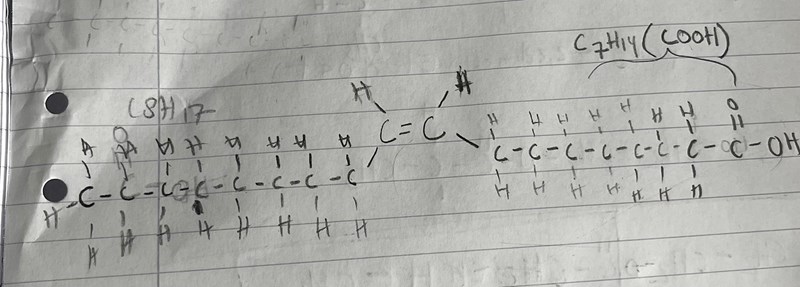 C7H14(COOH)
C8H17
H H
C=C
H H H H H H H H H H H H H H H O
H-C-C-C-C-C-C-C-C C-C-C-C-C-C-C-C-OH
H H H H H H H H H H H H H H H